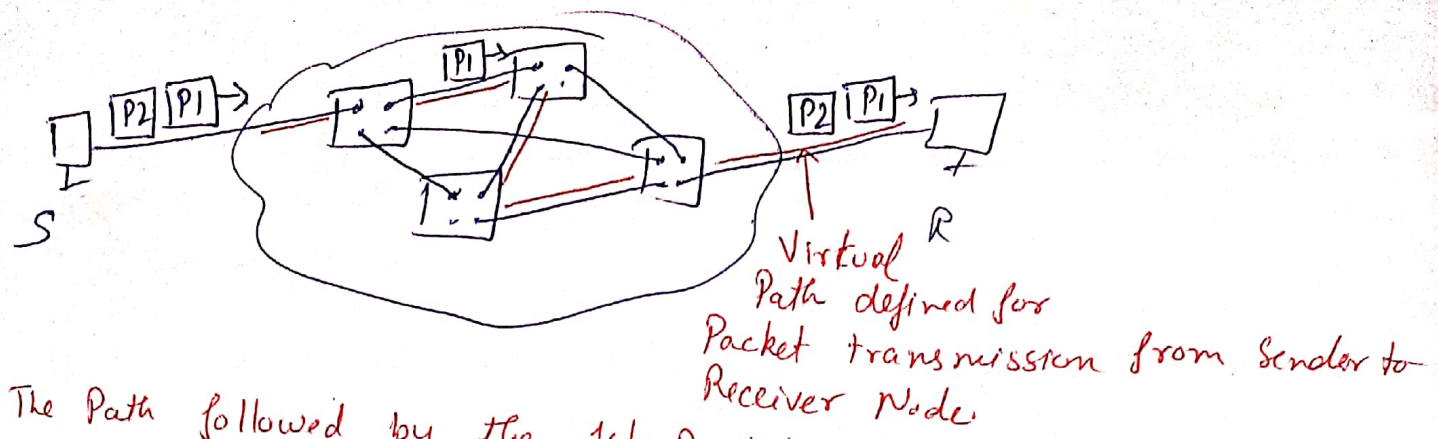 P1
P2 P1
P2 P1
S
R
Virtual
Path defined for
Packet transmission from Sender to
Receiver Node.
The Path followed by the 1st